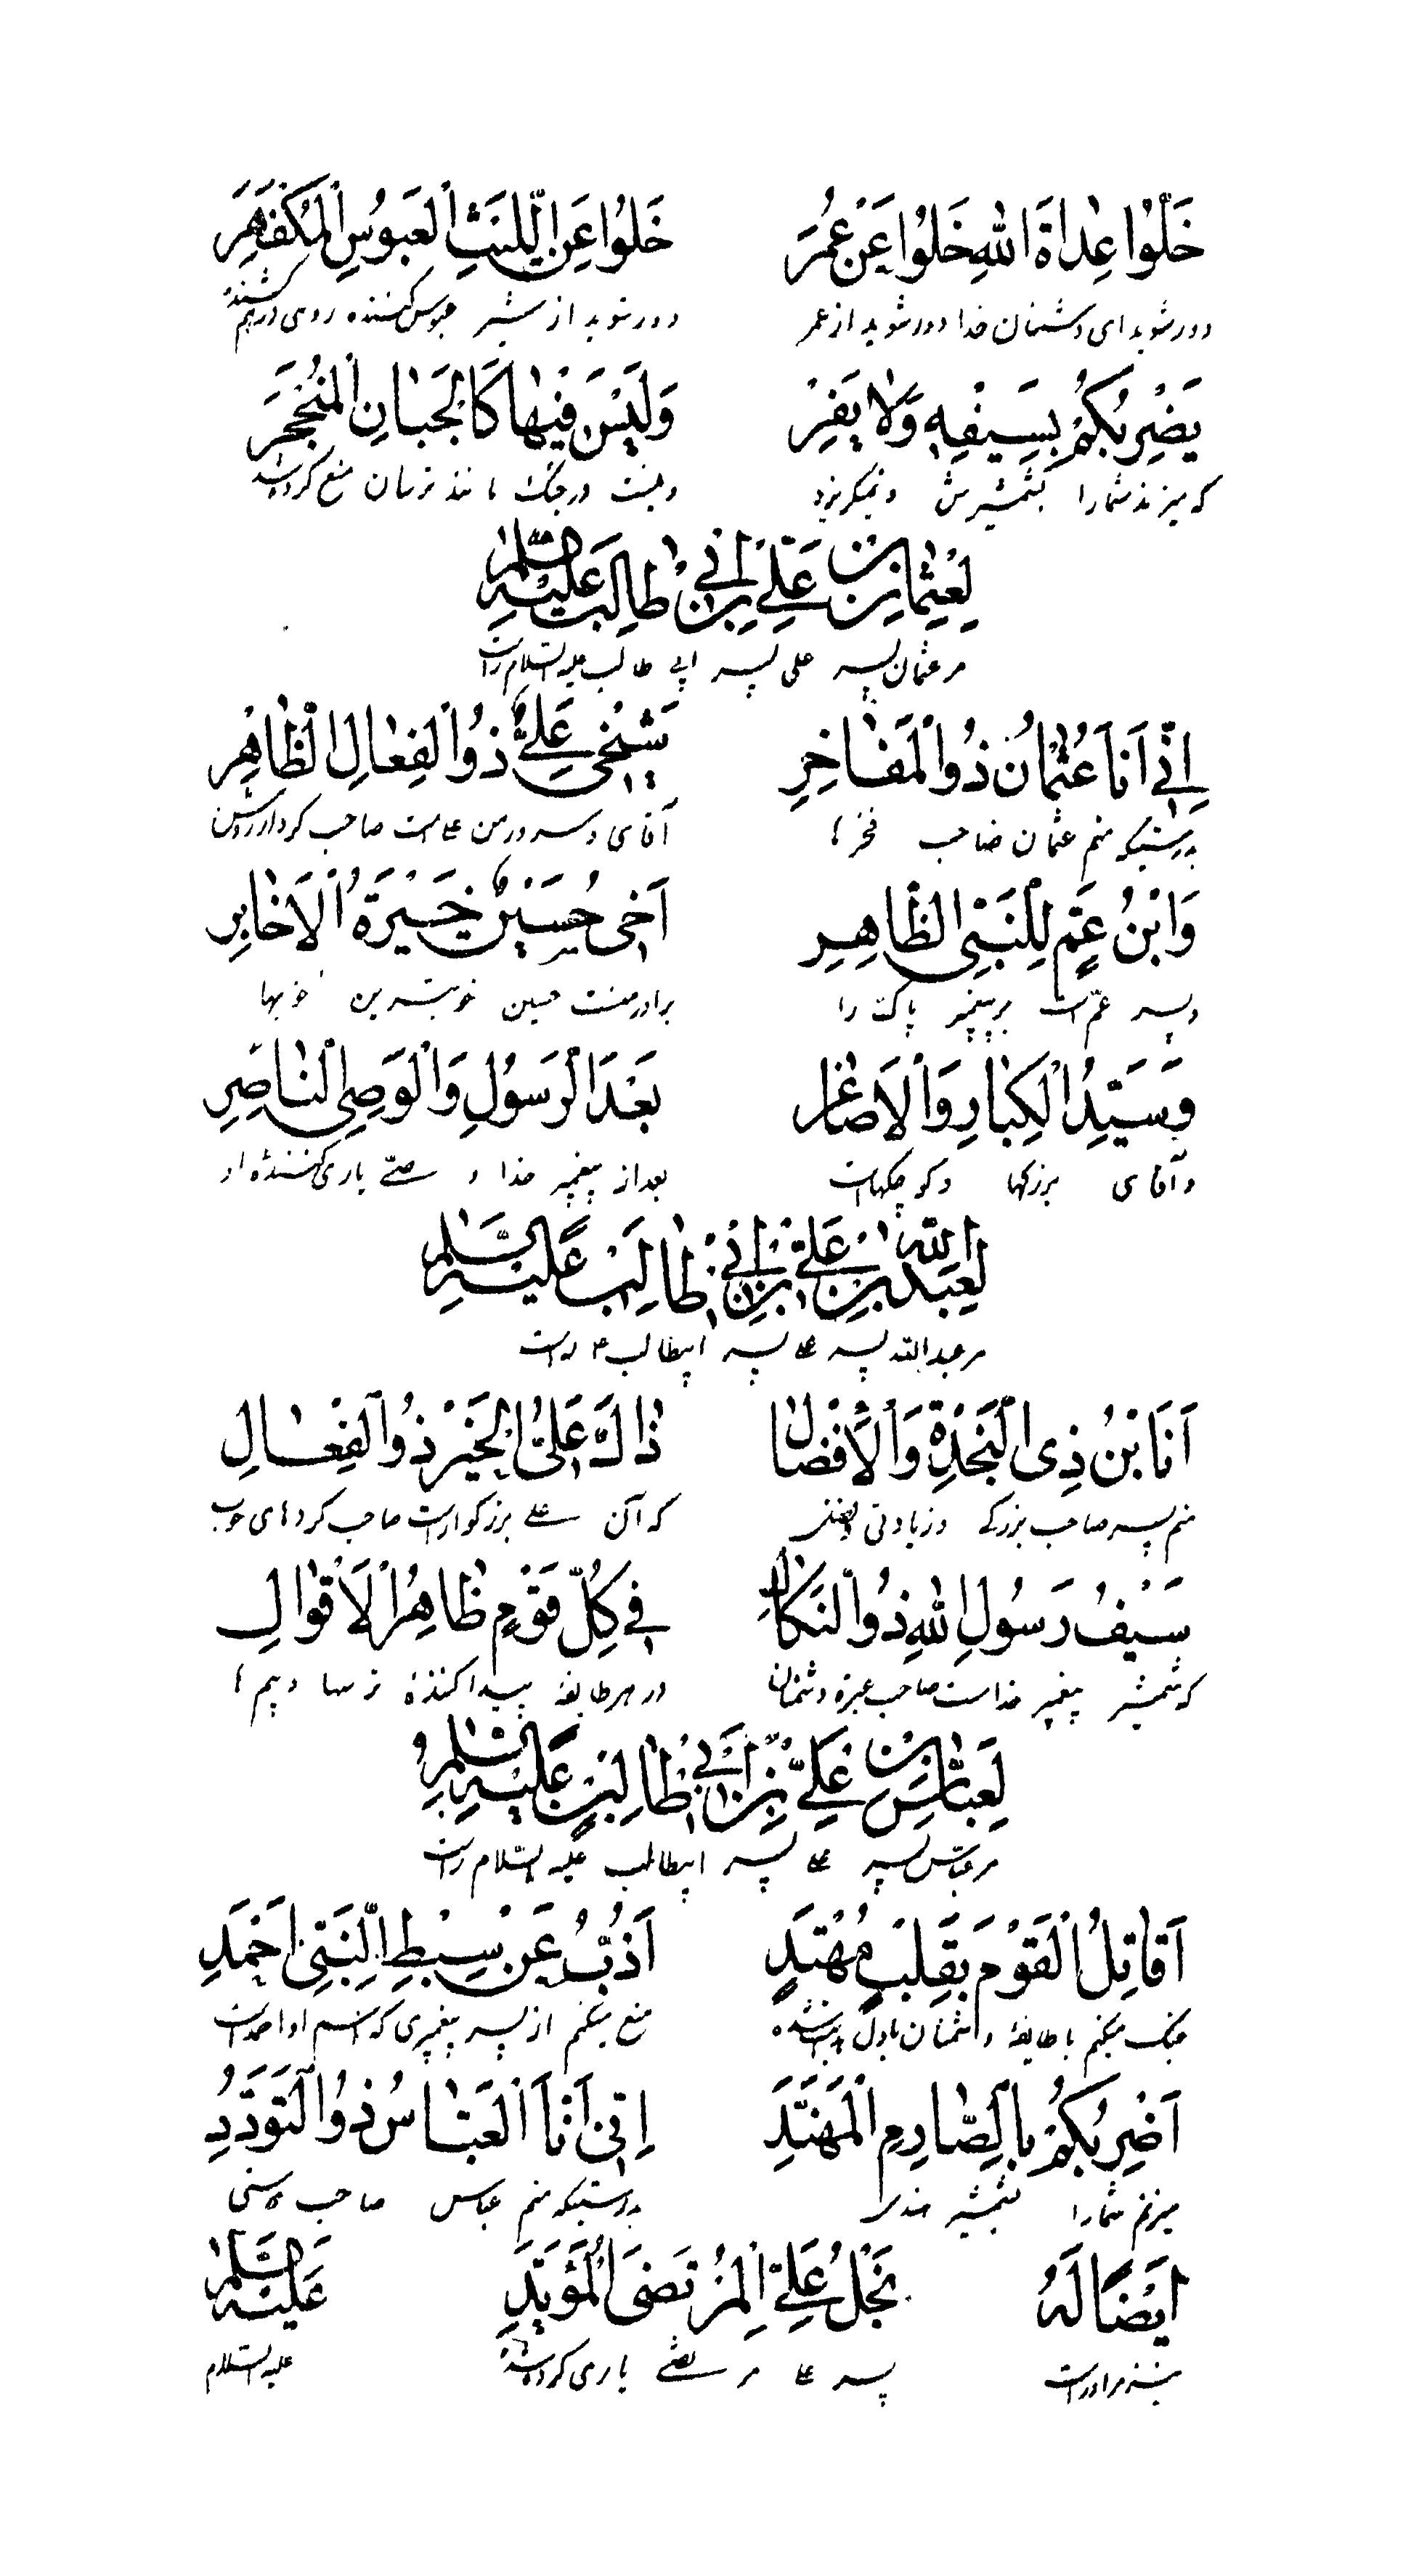 خَلُّوْا عِدٰاةَ اللهِ خَلُوْا عَنْ عُمَرَ خَلوُا عَنِ اللَّيْثِ الْعَبوُسِ الْمُكْفَهَِرَ
دور شوید ای دشمنان خدا دور شوید از عمر دور شوید از شیر عبوس کننده روی درهم کشنده
يَضْرِبُكُمْ بِسَيْفِهِ وَلا يَفِرْ وَلَيْسَ فيْها كَالْجَبانِ الْمُنْجَحِرَ
که میزند شما را بشمشیرش و نمیگریزد و نیست در جنک مانند ترسان منع کرده شده
لِعُثِمانِ بْنِ عَلِيِّ بْنِ اَبي طالِبٍ عَلَيْهِ السَّلامُ
مر عثمان پسر علی پسر ابی طالب علیه السلام راست
اِنّي اَنَا عُثْمانُ ذُو الْمَفاخِرِ شَيْخي عَلِيٌّ ذُو الْفِعالِ الظّاهِرِ
بدرستیکه منم عثمان صاحب فخرها آقای و سرور من علی است صاحب کردار روشن
وَابْنُ عَمٍّ لِلنَّبِيِ الطّاهِرِ اَخي حُسَيْنٌ خَيْرَةُ الْاَخايِرِ
و پسر عمّ است مر پیغمبر پاک را برادر منست حسین خوبترین خوبها
وَسَيِّدُ الْكِبارِ وَالْاَصاغِرِ بَعْدَ الْرَسوُلِ وَالْوَصِي الْناصِرِ
و آقای بزرگها و کوچکهاست بعد از پیغمبر خدا و وصی یاری کننده او
لِعَبْدِ اللهِ بْنِ عَلِيِّ بْنِ اَبي طالِبٍ عَلَيْهِ السَّلامُ
مر عبدالله پسر علی پسر ابیطالب ع راست
اَنَا بْنُ ذِى الْنَجْدَةِ وَالْأِفْضٰالِ ذاكَ عَلِيُّ الْخَيْرِ ذُو الْفِعٰالِ
منم پسر صاحب بزرگی و زیادتی که آن علی بزرگوار است صاحب کردهای خوب
سَيْفُ رَسوُلِ اللهِ ذُو الْنَكالِ في كُلِّ قَوْمٍ ظاهِرُ الْاَقْوالِ
که شمشیر پیغمبر خداست صاحب عبرة دشمنان در هر طایفه پیدا کننده ترسها و بیم ها
لِعَبّاسِ بْنِ عَلِيِّ بْنِ اَبي طالِبٍ عَلَيْهِ السَّلامُ
مر عبّاس پسر علی پسر ابیطالب علیه السّلام راست
اَقاتِلُ الْقَوْمَ بِقَلْبٍ مُهْتَدٍ اَذُبُّ عَنْ سِبْطِ النَّبِيِّ اَحْمَدِ
جنک میکنم با طایفهٔ دشمنان با دل منع میکنم از پسر پیغمبری که اسم او احمد است
اَضْرِبُكُمْ بِالصّارِمِ الْمُهَنَّدِ اِنّي اَنَا الْعَبّاسُ ذُو الْتَوَدُّدِ
میزنم شما را بشمشیر هندی بدرستیکه منم عباس صاحب دوستی
اَيْضًا لَهُ نَجْلُ عَلِيِّ الْمُرْتَضَى الْمُؤَيَّدِ عَلَيْهِ السَّلامُ
نیز مر او راست پسر علی مرتضی یاری کرده شده علیه السّلام